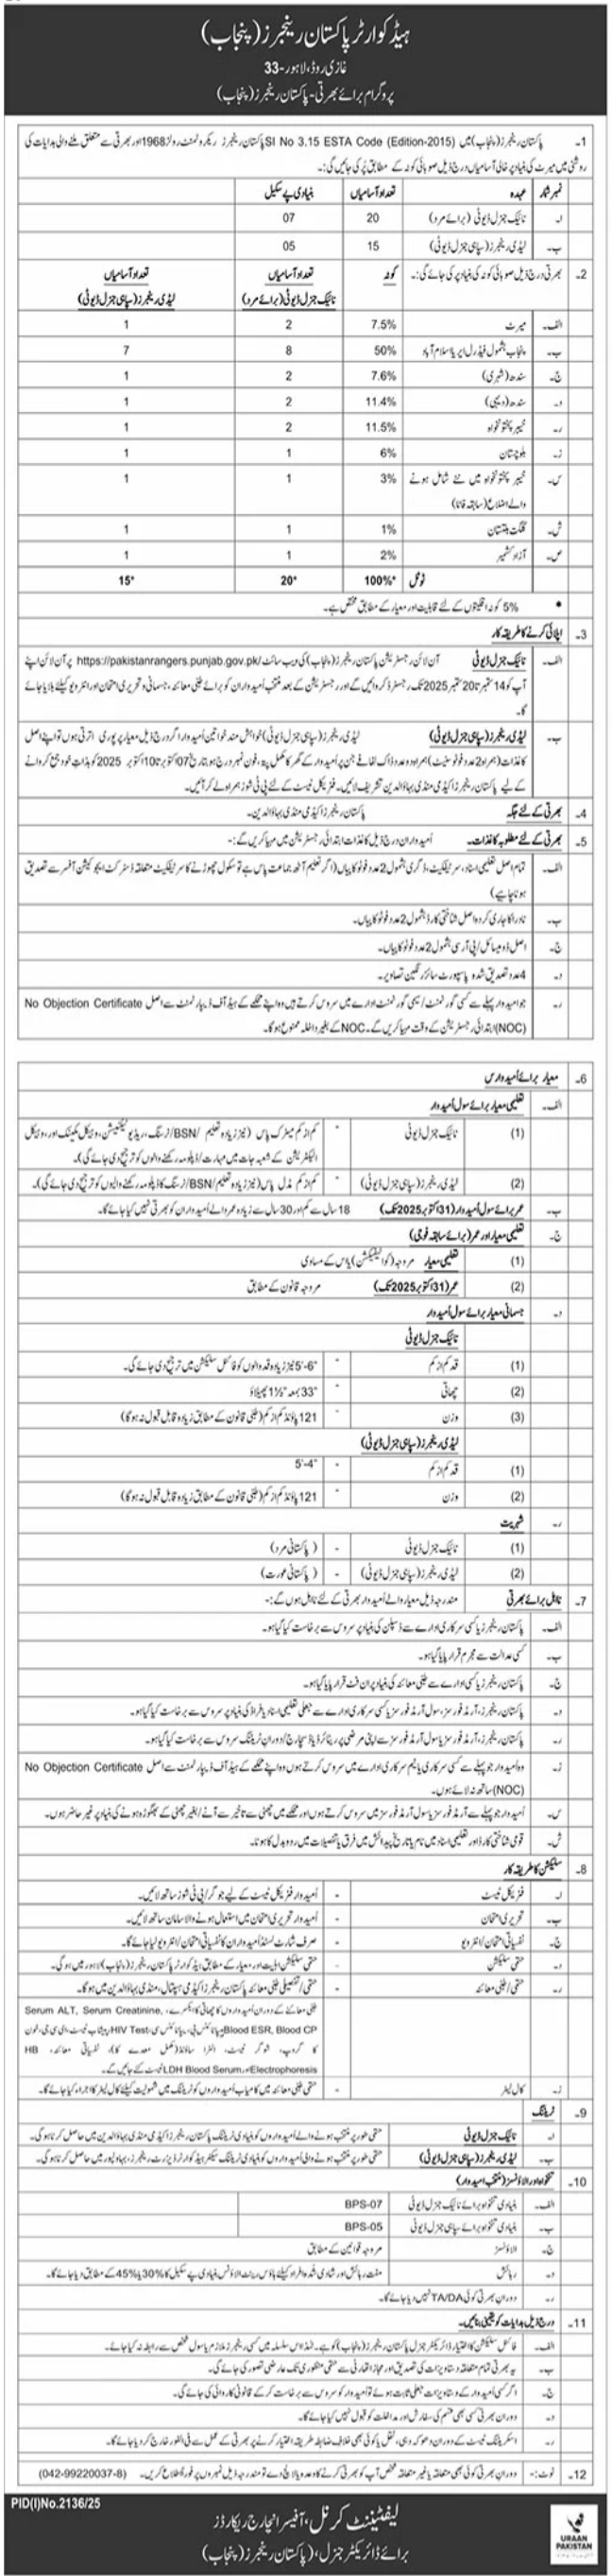 ہیڈ کوارٹر پاکستان رینجرز (پنجاب)
غازی روڈ، لاہور-33
پروگرام برائے بھرتی - پاکستان رینجرز (پنجاب)
1۔ پاکستان رینجرز (پنجاب) میں SI No 3.15 ESTA Code (Edition-2015) پاکستان رینجرز ریکروٹمنٹ رولز 1968 اور بھرتی سے متعلق ملنے والی ہدایات کی
روشنی میں میرٹ کی بنیاد پر خالی آسامیاں درج ذیل صوبائی کوٹہ کے مطابق پُر کی جائیں گی:۔
نمبر شمار عہدہ تعداد آسامیاں بنیادی پے سکیل
ا۔ نائیک جنرل ڈیوٹی (برائے مرد) 20 07
ب۔ لیڈی رینجرز (سپاہی جنرل ڈیوٹی) 15 05
2۔ بھرتی درج ذیل صوبائی کوٹہ کی بنیاد پر کی جائے گی:۔ کوٹہ تعداد آسامیاں تعداد آسامیاں
نائیک جنرل ڈیوٹی (برائے مرد) لیڈی رینجرز (سپاہی جنرل ڈیوٹی)
الف۔ میرٹ 7.5% 2 1
ب۔ پنجاب بشمول فیڈرل ایریا اسلام آباد 50% 8 7
ج۔ سندھ (شہری) 7.6% 2 1
د۔ سندھ (دیہی) 11.4% 2 1
ر۔ خیبر پختونخواہ 11.5% 2 1
ز۔ بلوچستان 6% 1 1
س۔ خیبر پختونخواہ میں نئے شامل ہونے 3% 1 1
والے اضلاع (سابقہ فاٹا)
ش۔ گلگت بلتستان 1% 1 1
ص۔ آزاد کشمیر 2% 1 1
ٹوٹل 100%* 20* 15*
* 5% کوٹہ اقلیتوں کے لئے قابلیت اور معیار کے مطابق مختص ہے۔
3۔ اپلائی کرنے کا طریقہ کار
الف۔ نائیک جنرل ڈیوٹی آن لائن رجسٹریشن پاکستان رینجرز (پنجاب) کی ویب سائٹ https://pakistanrangers.punjab.gov.pk/ پر آن لائن اپنے
آپ کو 14 ستمبر تا 20 ستمبر 2025 تک رجسٹرڈ کروائیں گے اور رجسٹریشن کے بعد منتخب اُمیدواران کو برائے طبی معائنہ، جسمانی و تحریری امتحان اور انٹرویو کیلئے بلایا جائے
گا۔
ب۔ لیڈی رینجرز (سپاہی جنرل ڈیوٹی) لیڈی رینجرز (سپاہی جنرل ڈیوٹی) خواہش مند خواتین اُمیدوار اگر درج ذیل معیار پر پوری اُترتی ہوں تو اپنے اصل
کاغذات (ہمراہ 2 عدد فوٹو سٹیٹ) ہمراہ دو عدد ڈاک لفافے جن پر اُمیدوار کے گھر کا مکمل پتہ، فون نمبر درج ہو بتاریخ 07 اکتوبر تا 10 اکتوبر 2025 کو بذات خود جمع کروانے
کے لیے پاکستان رینجرز اکیڈمی منڈی بہاؤالدین تشریف لائیں۔ فزیکل ٹیسٹ کے لئے پی ٹی شوز ہمراہ لے کر آئیں۔
4۔ بھرتی کے لئے جگہ پاکستان رینجرز اکیڈمی منڈی بہاؤالدین۔
5۔ بھرتی کے لئے مطلوبہ کاغذات۔ اُمیدواران درج ذیل کاغذات ابتدائی رجسٹریشن میں مہیا کریں گے:۔
الف۔ تمام اصل تعلیمی اسناد، سرٹیفکیٹ، ڈگری بشمول 2 عدد فوٹو کاپیاں (اگر تعلیم آٹھ جماعت پاس ہے تو سکول چھوڑنے کا سرٹیفکیٹ متعلقہ ڈسٹرکٹ ایجوکیشن آفسر سے تصدیق
ہونا چاہیے)
ب۔ نادرا کا جاری کردہ اصل شناختی کارڈ بشمول 2 عدد فوٹو کاپیاں۔
ج۔ اصل ڈومیسائل/پی آر سی بشمول 2 عدد فوٹو کاپیاں۔
د۔ 4 عدد تصدیق شدہ پاسپورٹ سائز رنگین تصاویر۔
ر۔ جو اُمیدوار پہلے سے کسی گورنمنٹ/سیمی گورنمنٹ ادارے میں سروس کرتے ہیں وہ اپنے محکمے کے ہیڈ آف ڈیپارٹمنٹ سے اصل No Objection Certificate
(NOC) ابتدائی رجسٹریشن کے وقت مہیا کریں گے۔ NOC کے بغیر داخلہ ممنوع ہو گا۔
6۔ معیار برائے اُمیدوارس
الف۔ تعلیمی معیار برائے سول اُمیدوار
(1) نائیک جنرل ڈیوٹی - کم از کم میٹرک پاس (نیز زیادہ تعلیم/BSN/نرسنگ، ریڈیو ٹیکنیشن، وہیکل مکینک اور، وہیکل
الیکٹریشن کے شعبہ جات میں مہارت/ڈپلومہ رکھنے والوں کو ترجیح دی جائے گی)۔
(2) لیڈی رینجرز (سپاہی جنرل ڈیوٹی) - کم از کم مڈل پاس (نیز زیادہ تعلیم/BSN/نرسنگ کا ڈپلومہ رکھنے والیوں کو ترجیح دی جائے گی)۔
ب۔ عمر برائے سول اُمیدوار (31 اکتوبر 2025 تک) 18 سال سے کم اور 30 سال سے زیادہ عمر والے اُمیدواران کو بھرتی نہیں کیا جائے گا۔
ج۔ تعلیمی معیار اور عمر (برائے سابقہ فوجی)
(1) تعلیمی معیار مروجہ (کوالیفیکیشن) یا اس کے مساوی
(2) عمر (31 اکتوبر 2025 تک) مروجہ قانون کے مطابق
د۔ جسمانی معیار برائے سول اُمیدوار
نائیک جنرل ڈیوٹی
(1) قد کم از کم - 5'-6" نیز زیادہ قد والوں کو فائنل سلیکشن میں ترجیح دی جائے گی۔
(2) چھاتی - 33" بمعہ 1½" پھیلاؤ
(3) وزن - 121 پاؤنڈ کم از کم (طبی قانون کے مطابق زیادہ قابل قبول نہ ہو گا)
لیڈی رینجرز (سپاہی جنرل ڈیوٹی)
(1) قد کم از کم - 5'-4"
(2) وزن - 121 پاؤنڈ کم از کم (طبی قانون کے مطابق زیادہ قابل قبول نہ ہو گا)
ر۔ شہریت
(1) نائیک جنرل ڈیوٹی - (پاکستانی مرد)
(2) لیڈی رینجرز (سپاہی جنرل ڈیوٹی) - (پاکستانی عورت)
7۔ نااہل برائے بھرتی مندرجہ ذیل معیار والے اُمیدوار بھرتی کے لئے نااہل ہوں گے:۔
الف۔ پاکستان رینجرز یا کسی سرکاری ادارے سے ڈسپلن کی بنیاد پر سروس سے برخاست کیا گیا ہو۔
ب۔ کسی عدالت سے مجرم قرار پایا گیا ہو۔
ج۔ پاکستان رینجرز یا کسی ادارے سے طبی معائنہ کی بنیاد پر ان فٹ قرار پایا گیا ہو۔
د۔ پاکستان رینجرز، آرمڈ فورسز، سول آرمڈ فورسز یا کسی سرکاری ادارے سے جعلی تعلیمی اسناد یا فراڈ کی بنیاد پر سروس سے برخاست کیا گیا ہو۔
ر۔ پاکستان رینجرز، آرمڈ فورسز یا سول آرمڈ فورسز سے اپنی مرضی پر ریٹائرڈ یا ڈسچارج/دوران ٹریننگ سروس سے برخاست کیا گیا ہو۔
ز۔ وہ اُمیدوار جو پہلے سے کسی سرکاری یا نیم سرکاری ادارے میں سروس کرتے ہوں وہ اپنے محکمے کے ہیڈ آف ڈیپارٹمنٹ سے اصل No Objection Certificate
(NOC) ساتھ نہ لائے ہوں۔
س۔ اُمیدوار جو پہلے سے آرمڈ فورسز یا سول آرمڈ فورسز میں سروس کرتے ہوں اور محکمے میں چھٹی سے تاخیر سے آنے/بغیر چھٹی کے بھگوڑہ ہونے کی بنیاد پر غیر حاضر ہوں۔
ش۔ قومی شناختی کارڈ اور تعلیمی اسناد میں نام یا تاریخ پیدائش میں فرق یا تفصیلات میں ردو بدل کا ہونا۔
8۔ سلیکشن کا طریقہ کار
ا۔ فزیکل ٹیسٹ - اُمیدوار فزیکل ٹیسٹ کے لیے جوگر/پی ٹی شوز ساتھ لائیں۔
ب۔ تحریری امتحان - اُمیدوار تحریری امتحان میں استعمال ہونے والا سامان ساتھ لائیں۔
ج۔ نفسیاتی امتحان/انٹرویو - صرف شارٹ لسٹڈ اُمیدواران کا نفسیاتی امتحان/انٹرویو لیا جائے گا۔
د۔ حتمی سلیکشن - حتمی سلیکشن اہلیت اور معیار کے مطابق ہیڈ کوارٹر پاکستان رینجرز (پنجاب) لاہور میں ہو گی۔
ر۔ حتمی/طبی معائنہ - حتمی/تفصیلی طبی معائنہ پاکستان رینجرز اکیڈمی ہسپتال، منڈی بہاؤالدین میں ہو گا۔
طبی معائنے کے دوران اُمیدواروں کا چھاتی کا ایکسرے، Serum ALT, Serum Creatinine,
Blood ESR, Blood CP ہیپاٹائٹس بی، ہیپاٹائٹس سی، HIV Test، پیشاب ٹیسٹ، ای سی جی، خون
کا گروپ، شوگر ٹیسٹ، الٹرا ساؤنڈ (مکمل معدے کا)، نفسیاتی معائنہ، HB
Electrophoresis اور LDH Blood Serum ٹیسٹ کئے جائیں گے۔
ز۔ کال لیٹر - حتمی طبی معائنہ میں کامیاب اُمیدواروں کو ٹریننگ میں شمولیت کیلئے کال لیٹر کا اجراء کیا جائے گا۔
9۔ ٹریننگ
ا۔ نائیک جنرل ڈیوٹی حتمی طور پر منتخب ہونے والے اُمیدواروں کو بنیادی ٹریننگ پاکستان رینجرز اکیڈمی منڈی بہاؤالدین میں حاصل کرنا ہو گی۔
ب۔ لیڈی رینجرز (سپاہی جنرل ڈیوٹی) حتمی طور پر منتخب ہونے والی اُمیدواروں کو بنیادی ٹریننگ سیکٹر ہیڈ کوارٹر ڈیزرٹ رینجرز، بہاولپور میں حاصل کرنا ہو گی۔
10۔ تنخواہ اور الاؤنسز (منتخب اُمیدوار)
الف۔ بنیادی تنخواہ برائے نائیک جنرل ڈیوٹی BPS-07
ب۔ بنیادی تنخواہ برائے سپاہی جنرل ڈیوٹی BPS-05
ج۔ الاؤنسز مروجہ قوانین کے مطابق
د۔ رہائش مفت رہائش اور شادی شدہ افراد کیلئے ہاؤس رینٹ الاؤنس بنیادی پے سکیل کا 30% یا 45% کے مطابق دیا جائے گا۔
ر۔ دوران بھرتی کوئی TA/DA نہیں دیا جائے گا۔
11۔ درج ذیل ہدایات کو یقینی بنائیں۔
الف۔ فائنل سلیکشن کا اختیار ڈائریکٹر جنرل پاکستان رینجرز (پنجاب) کو ہے۔ لہٰذا اس سلسلہ میں کسی رینجرز ملازم یا سول شخص سے رابطہ نہ کیا جائے۔
ب۔ یہ بھرتی تمام متعلقہ دستاویزات کی تصدیق اور مجاز اتھارٹی سے حتمی منظوری تک عارضی تصور کی جائے گی۔
ج۔ اگر کسی اُمیدوار کے دستاویزات جعلی ثابت ہوئے تو اُمیدوار کو سروس سے برخاست کر کے قانونی کاروائی کی جائے گی۔
د۔ دوران بھرتی کسی بھی قسم کی سفارش اور مداخلت کو قبول نہیں کیا جائے گا۔
ر۔ اسکریننگ ٹیسٹ کے دوران دھوکہ دہی، نقل یا کوئی بھی خلاف ضابطہ طریقہ اختیار کرنے پر بھرتی کے عمل سے فی الفور خارج کر دیا جائے گا۔
12۔ نوٹ:۔ دوران بھرتی کوئی بھی متعلقہ یا غیر متعلقہ شخص آپ کو بھرتی کرنے کا وعدہ یا لالچ دے تو مندرجہ ذیل نمبروں پر فوراً اطلاع کریں۔ (042-99220037-8)
PID(I)No.2136/25
لیفٹیننٹ کرنل، آفیسر انچارج ریکارڈز
برائے ڈائریکٹر جنرل، (پاکستان رینجرز (پنجاب)
URAAN
PAKISTAN